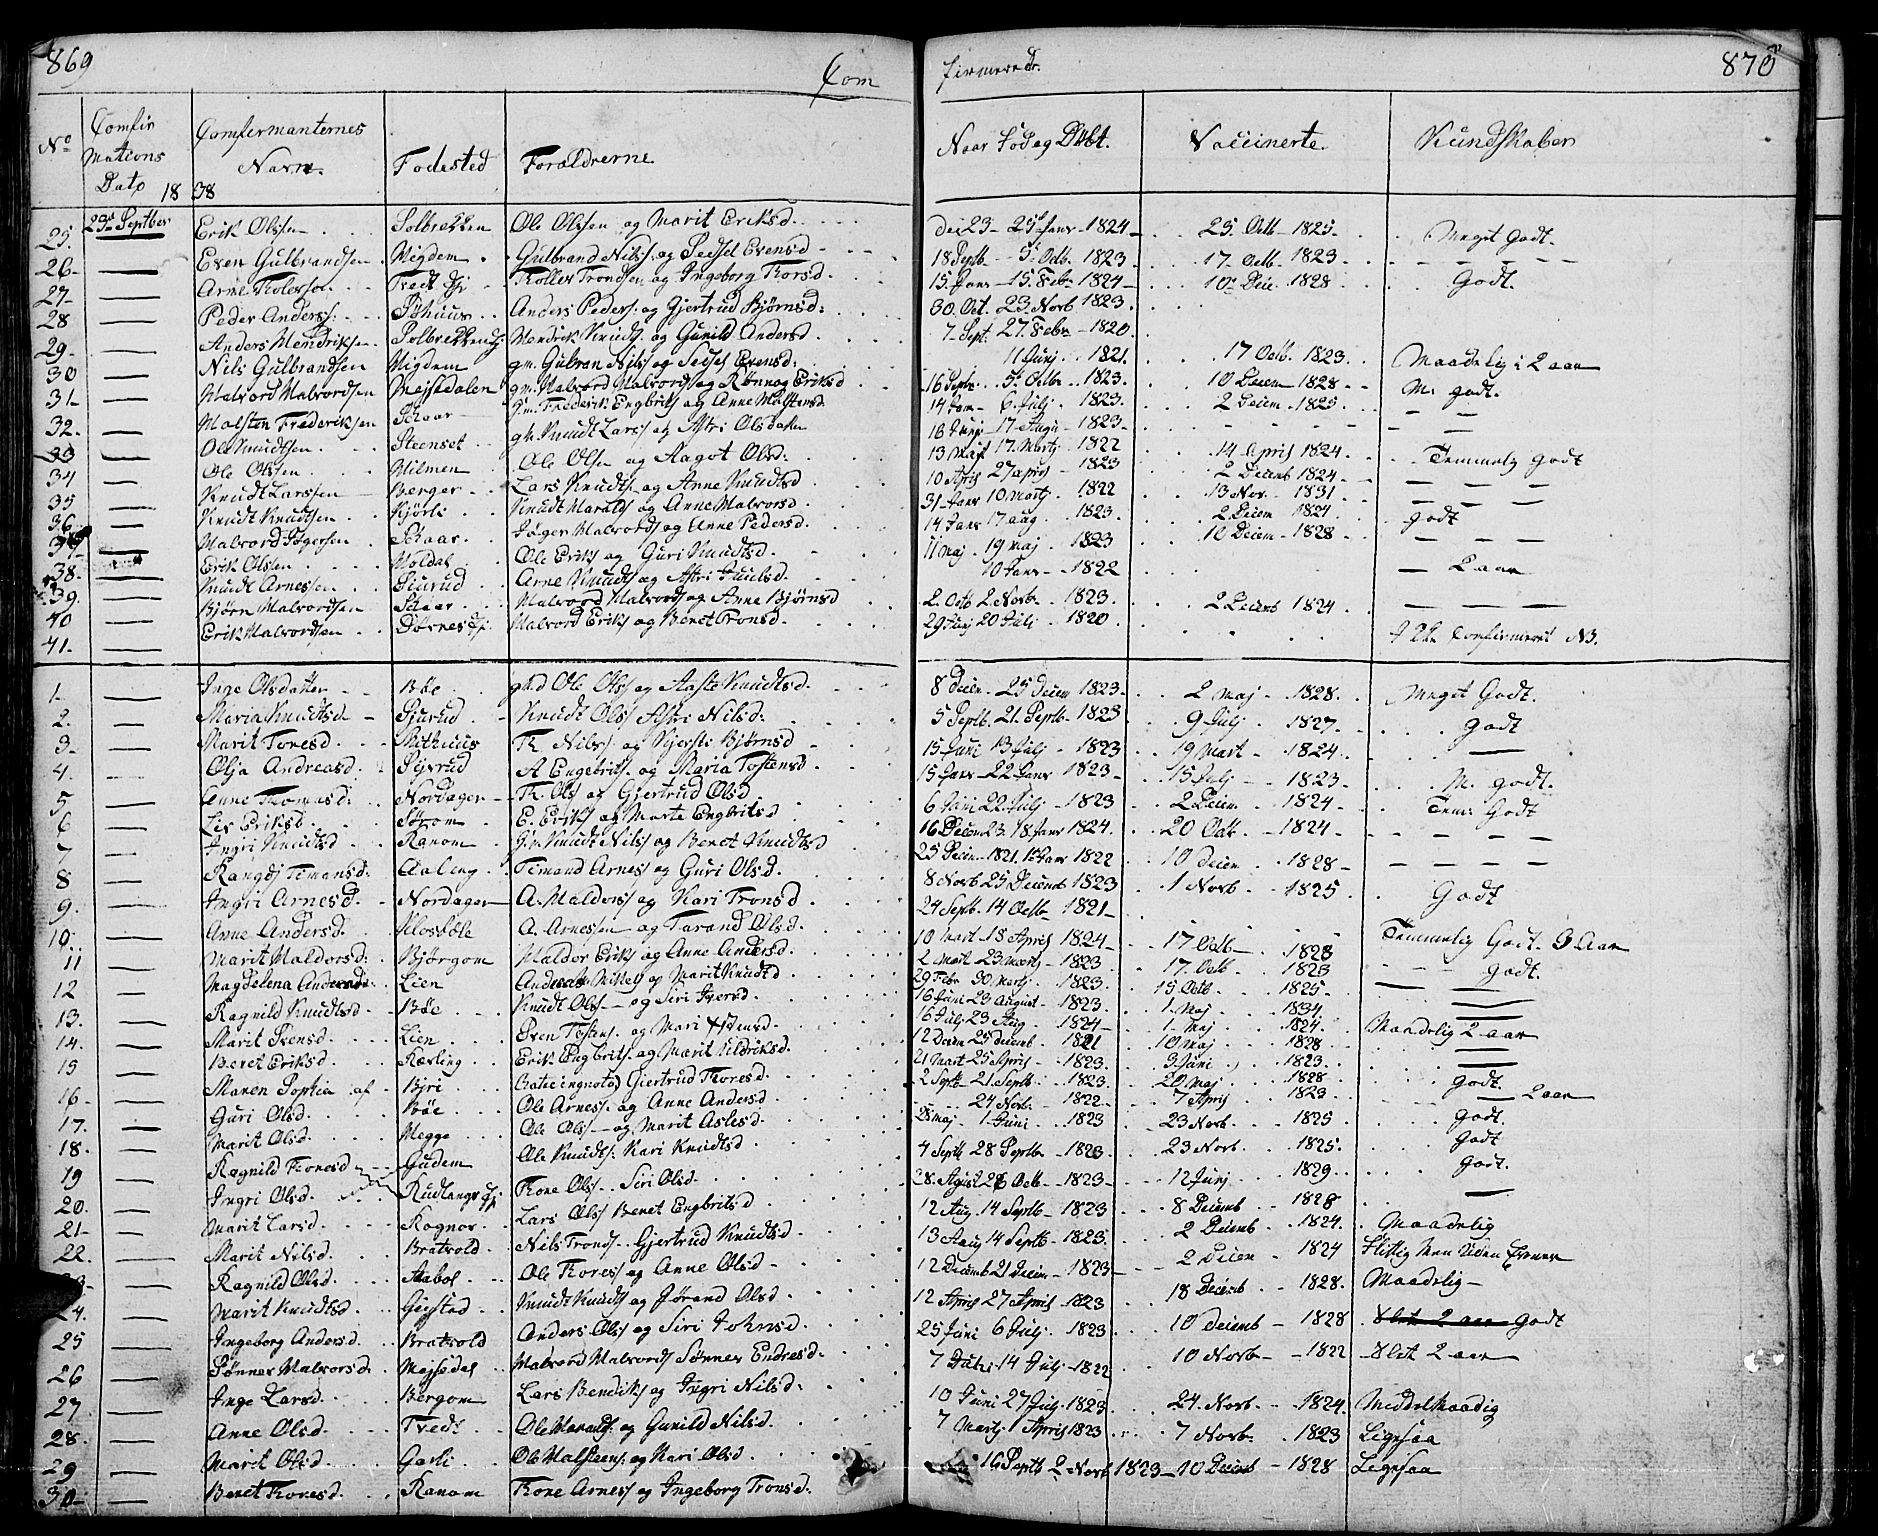 869
Com
firmerede.
870
No
Comfir
Mations
Dato 18 38
Comfermanternes
Navn.
Fodested
Forældrerne.
Naar Föd og Döbt.
Vaccinerte.
Kundskaber
25. 23de Septber Erik Olssen Solbrekken Ole Olssen og Marit Eriksd. 1824 25 Octb 1825 Meget Godt.
26 Even Gulbrandsen Gulbrand Nilss. og Sedsel Evensd 18 Septb 5 Octb. 1823 17 Octb. 1823
27 Arne Tolerson Tvedt Ej Trondsen og Ingeborg Torsd. 15. Janr 15. Febr 1824 10 Decem. 1828 Godt.
28 Peder Anderss: Anders Peders: og Gjertrud Bjørnsd: 30. Oct. 23. Novb 1823
29 Anders Hendriksen Hendrik Knudts og Gunild Andersd 7 Sept. 27. Febr 1820
30 Nils Gulbrandsen gm. Gulbran Nilss og Sedsel Evensd: 11 Junj 1821. 17 Octb. 1823 Maadelig i 2 aar
31 Halvord Halvordsen gm. Halvord Halvords og Rønnog Eriksd 16 Septr. 5 Octbr 1823. 10 Decem 1828 M. godt.
32. Holsten Frederiksen Skaar gm. Frederik Engbrits og Anne 14 Jan 6. Julj 1823. 2 Decem. 1825
33 Ole Knudtsen Steenset gm. Knudt Larss og Astri Olsdater 16 Junj 17 Augu 1823
34 Ole Olssen Hilmen Ole Olsen og Aagot Olsd: 13 Majs 17. Martj 1822 14 Apris 1824 Temmelig godt
35 Knudt Larssen Berger Lars Knudts og Anne Knudtsd 10 Apris 27 april 1823 2 Decemb 1824
36 Knudt Knudtsen Kjörli Knudt Haralds og Anne Halvorsd 31 Janr 10 Martj 1822 13 Nov. 1831
37 Halvord Jögersen Skaar Jöger Halvords og Anne Pedersd. 14 Janr 17 aug. 1823. 2 Decem 1824 godt
38 Erik Olssen Moldal Ole Eriks og Guri Knudtsd. 11 Maj 19 maj 1823 10 Decem 1828
39. Knudt Arnessen Sjurud Arne Knudts og Astri Juulsd. 10 Janr 1822 2 aar
40 Björn Halvordsen Skaar Halvord Halvords og Anne Björnsd 2. Octb 2. Novbr 1823. 2 Decemb 1824
41. Erik Halvordsen Halvord Eriks og Beret Tronsd. 29 Junj 20 Juli 1820 Confirmeret N3.
1 Inge Olsdatter Böe gm.d Ole Olss og Aaste Knudtsd. 8 Decem. 25 Decem 1823 2 Maj 1828. Meget Godt.
2. Maria Knudtsd Sjurud Knudt Olss Astri Nilsd: 5 Septb. 21. Septb 1823 9 Julj 1827 godt
3 Marit Toresd. Th Nilss og Kjersti Björnsd 15 Juni 13 Julj 1823 19 Mart 1824
4. Olja Andreasd. A Engebrits. og Maria Tostensd 15 Janr 22 Janr 1823 15 Julj 1823 M. godt.
5 Anne Thomasd. Nordager Th. Ols og Gjertrud Olsd 6 Juni 22. Julj 1823 2 Decem 1824 Tem: Godt
6 Liv Eriksd. Sörom E. Eriks og Marte Engbritsd 16 Decem 23 18 Janr 1824. 20 Octb. 1824
7 Ingri Knudtsd Ranom gm. Knudt Nils og Beret Knudtsd 25 Decem 1821. 1 Janr 1822 10 Decem 1828
8 Rangdj Timansd: Aaling Timand Arnes og Guri Olsd. 8 Novb 25 Decemb 1823 1 Novb. 1825 Godt
9 Ingri Arnesd. Nordager A. Halders og Kari Tronsd 24 Septb. 14 Octb 1821
10. Anne Andersd. A. Arnessen og Tarand Olsd. 10 Mart 18 Apris 1824 17 Octb 1823 Temmelig Godt. 3 Aar
11 Marit Haldorsd: Björgom Haldor Eriks og Anne Andersd. 2 Mart 23 Martj 1823 17. Octb. 1823 godt.
12 Magdelena Andersd: Lien Anders og Marit Knudtsd 29 Febr 30 Martj 1823. 15 Octb. 1825
13. Ragnild Knudtsd Böe Knudt Olss og Siri Iversd. 16 Juni 23 August 1823. 1 Maj 1834
14. Marit Svensd: Lien Sven Tostens. og Mari 16 Julj 23 Aug. 1824 1 Maj 1824. Maadelig 2 aar
15 Beret Eriksd. Kærling Erik Engbrits. og Marit 12 Decem 25 Decemb. 1821 10 Maj 1828
16 Maren Sophia af Bjri Gjertrud Toresd. 21 Mart 25 Apris 1823. 3 Juni 1823
17. Guri Olsd. Böe Ole Arness. og Anne Andersd 2 Septb 21. Septb. 1823. 20 Maj 1828 godt.
18. Marit Olsd. Hegge Ole Olss og Marit Aslesd. 24 Novb. 1822 7 Aprij 1823 2 aar
19 Ragnild Toresd Gudem Ole Knudts: Kari Knudtsd 28 Maj 1 Juni 1823 23 Novb. 1825 godt.
20. Ingri Olsd. Rudlangs Ej. Tore Olss. Siri Olsd 4 Septb 28 Septb 1823 23 Novb. 1825. Godt
21 Marit Larsd. Rognos Lars Olss Beret Engbritsd 28. August 28 Octb 1823 12 Junj 1829 godt.
22. Marit Nilsd. Bratvold Nils Trons. Gjertrud Knudtsd 12 Aug. 14 Septb 1823 8 Decemb 1828
23 Ragnild Olsd. Aabol Ole Tores og Anne Olsd 13 Aug 14 Septb 1823. 2 Decemb 1824. Maadelig
24. Marit Knudtsd. Gigstad Knudt Knudts og Jörand Olsd 12 Decemb 21 Decem 1823 2 Decem 1824 Flittig Men Uden Evner
25 Ingeborg Andersd. Bratvold Anders Olss og Siri Johnsd. 12 Apris 27 Apris 1823 18 Decemb 1828. Maadelig
26 Rönnev Halvorsd. Majsedal Halvord Halvords Rönnev Endresd. 25 Juni 6 Julj. 1823 10 Decemb 1828 Slet 2 aar godt
27 Inge Larsd. Bergom Lars Bendiks og Ingri Nilsd. 7 Juli 14 Julj 1822 10 Novb 1822 Slet 2 aar
28. Anne Olsd Tvedt Ole og Gunild Nilsd. 10 Juni 27 Julj. 1823 24. Novb 1824. Middelmaadig
29 Marit Olsd Garli Ole Halsteens. og Kari Olsd 7 Martj 1 Apris 1823 7 Novb. 1823 Ligesaa
30 Beret Toresd. Ranom Tore Arnes og Ingeborg Tronsd. 16 Septb 2 Novb 1823 10 Decemb 1828 Ligesaa